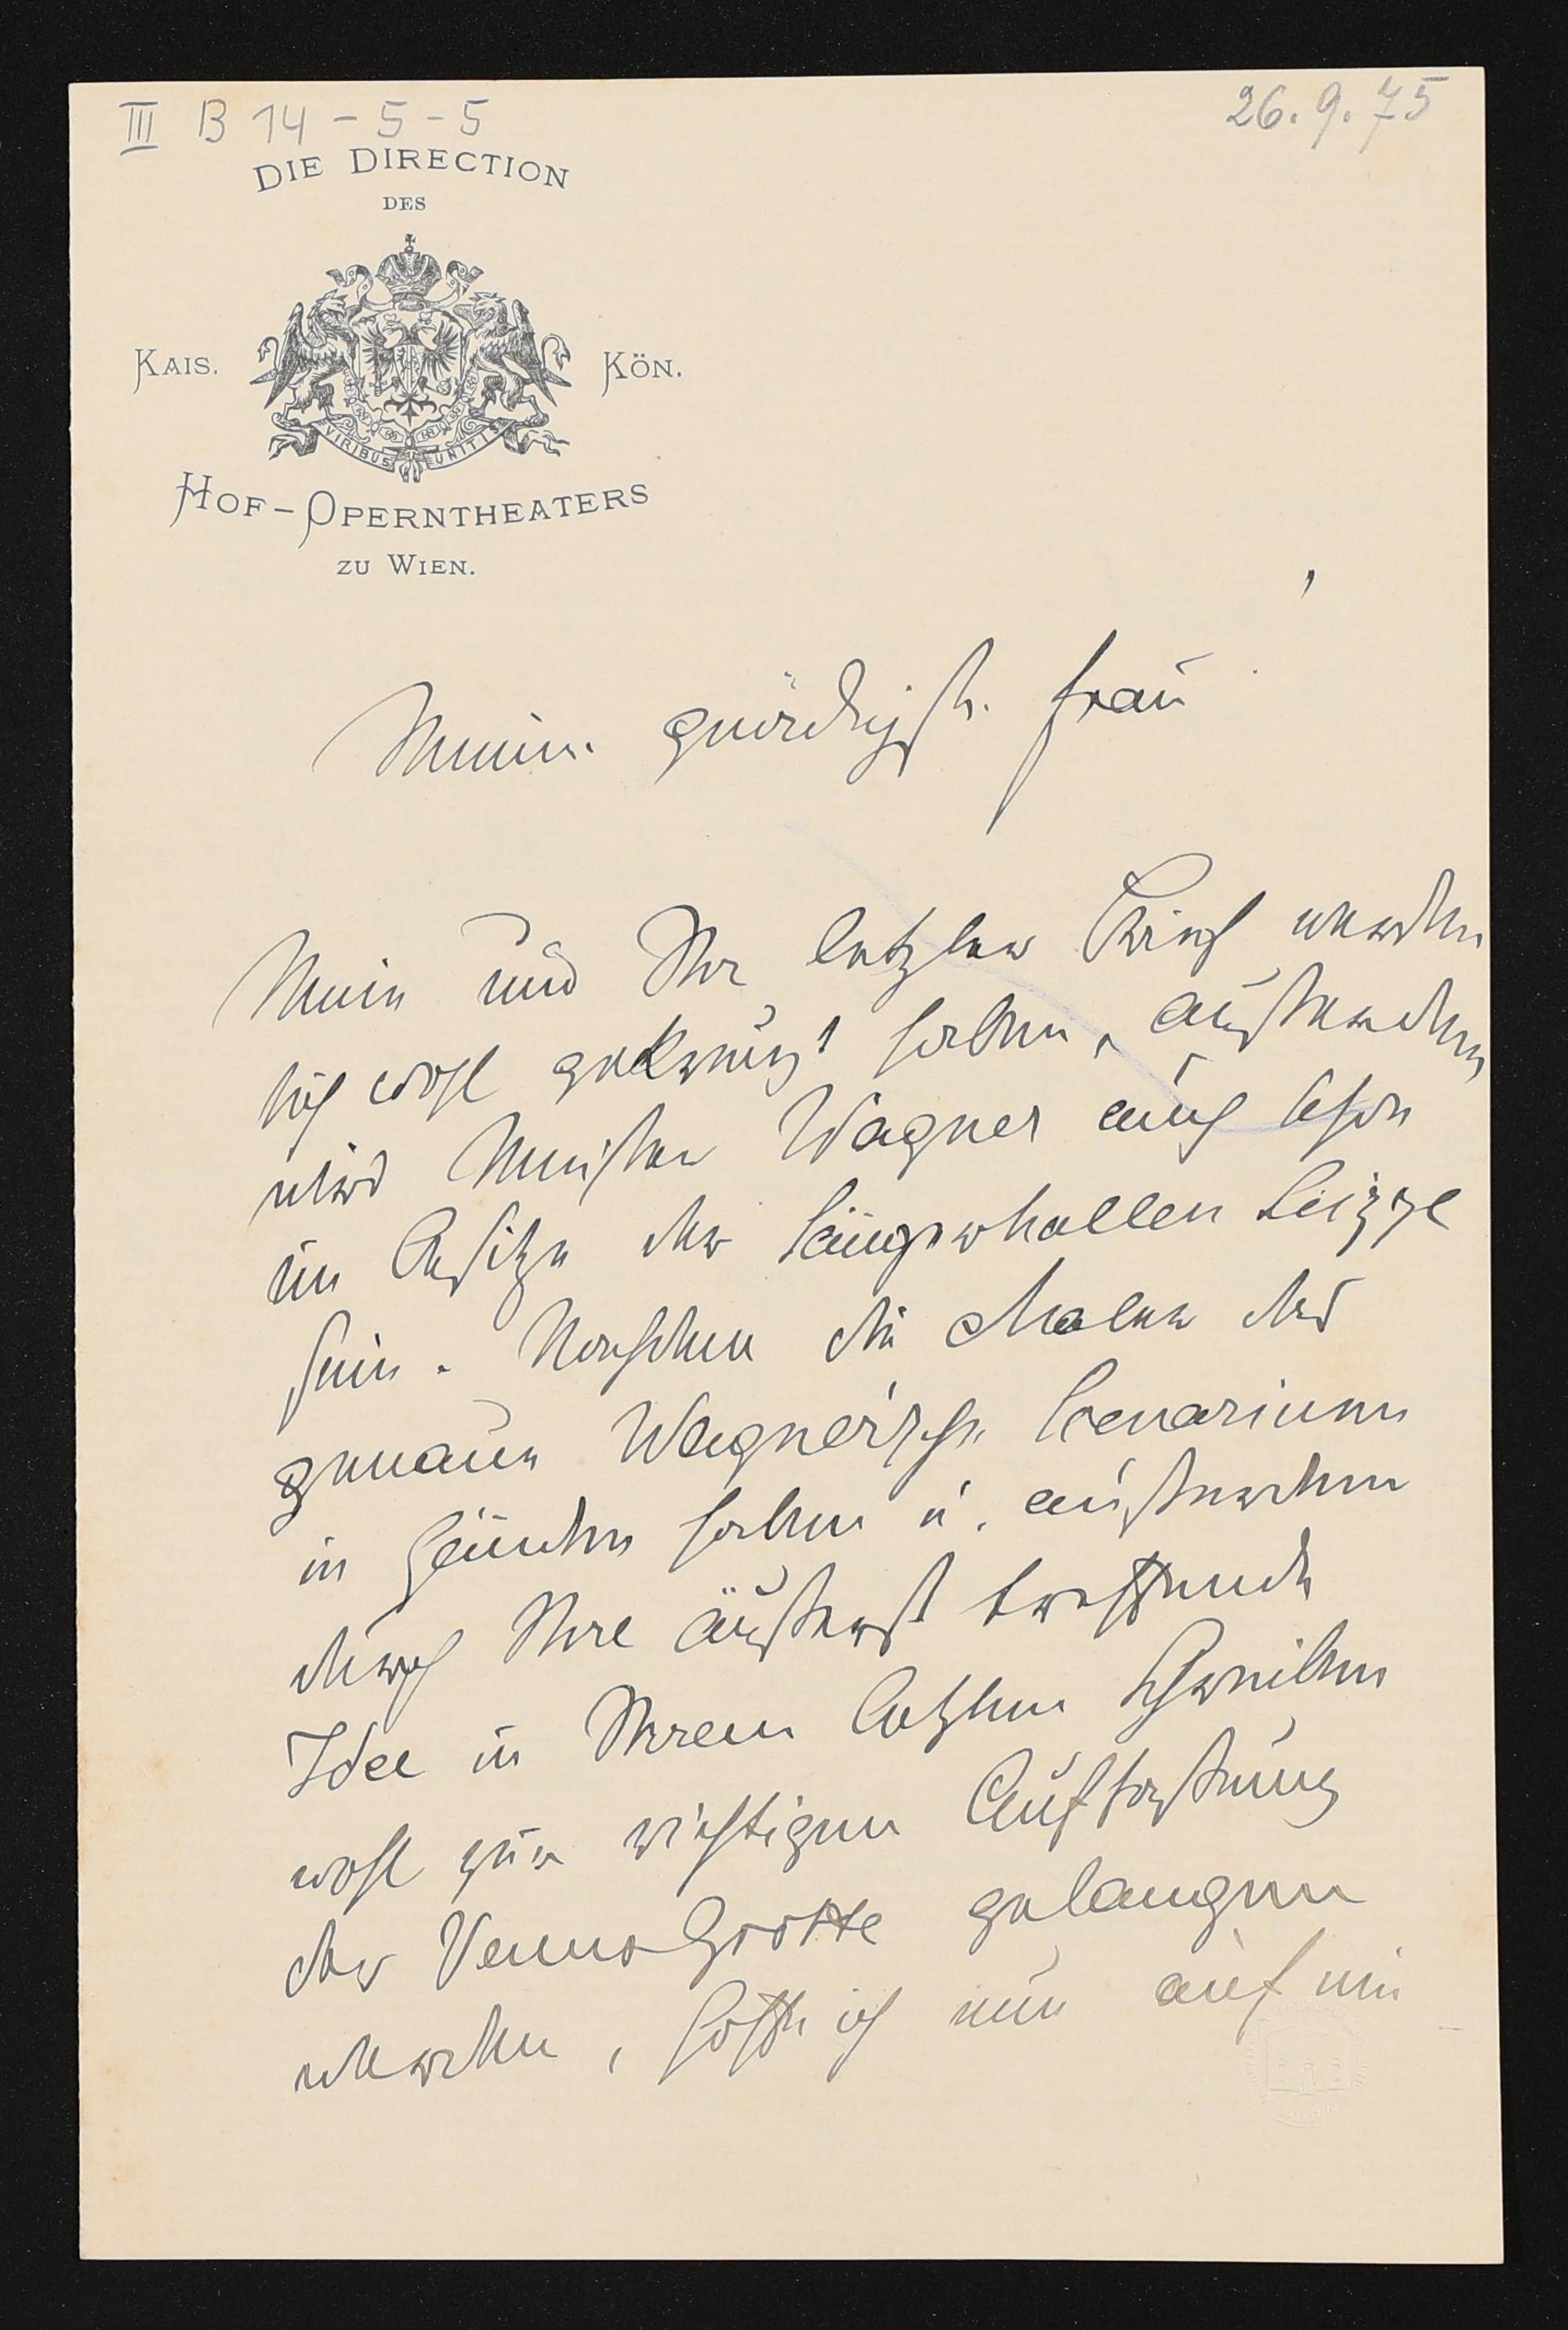 III B 14-5-5
26. 9. 75
DIE DIRECTION
DES
KAIS. KÖN.
VIRIBUS UNITIS
HOF-OPERNTHEATERS
ZU WIEN.
Meine gnädigste Frau
Mein und Ihr letzter Brief werden
sich wohl gekreuzt haben, außerdem
wird Meister Wagner auch schon
im Besitze der Sängerhallen Skizze
sein. Nachdem die Maler das
genaue Wagner'sche Scenarium
in Händen haben u. außerdem
durch Ihre äußerst treffende
Idee in Ihrem letzten Schreiben
wohl zur richtigen Auffassung
der Venus Grotte gelangen
werden, hoffe ich nun auf ein